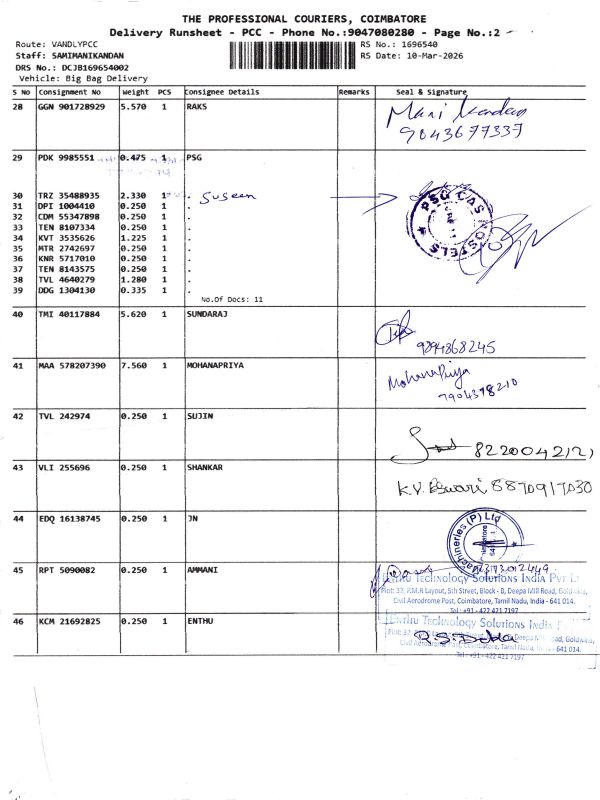 THE PROFESSIONAL COURIERS, COIMBATORE
Delivery Runsheet - PCC - Phone No.:9047080280 - Page No.:2
Route: VANDLYPCC RS No.: 1696540
Staff: SAMIMANIKANDAN RS Date: 10-Mar-2026
DRS No.: DCJB169654002
Vehicle: Big Bag Delivery
S No Consignment No Weight PCS Consignee Details Remarks Seal & Signature
28 GGN 901728929 5.570 1 RAKS
9043677337
29 PDK 9985551 0.475 1 PSG
30 TRZ 35488935 2.330 1 . Suseen
31 DPI 1004410 0.250 1 .
32 CDM 55347898 0.250 1 .
33 TEN 8107334 0.250 1 .
34 KVT 3535626 1.225 1 .
35 MTR 2742697 0.250 1 .
36 KNR 5717010 0.250 1 .
37 TEN 8143575 0.250 1 .
38 TVL 4640279 1.280 1 .
39 DDG 1304130 0.335 1 .
PSG CAS HOSTELS
No.Of Docs: 11
40 TMI 40117884 5.620 1 SUNDARAJ
9894868245
41 MAA 578207390 7.560 1 MOHANAPRIYA
MohanaPriya
7904378210
42 TVL 242974 0.250 1 SUJIN
43 VLI 255696 0.250 1 SHANKAR
K.V. Eswari 8870917030
44 EDQ 16138745 0.250 1 JN
Machineries (P) Ltd
45 RPT 5090082 0.250 1 AMMANI
Enthu Technology Solutions India Pvt L
Plot: 32, P.M.R Layout, 5th Street, Block - B, Deepa Mill Road, Goldwins,
Civil Aerodrome Post, Coimbatore, Tamil Nadu, India - 641 014.
Tel : +91 - 422 421 7197
46 KCM 21692825 0.250 1 ENTHU
Enthu Technology Solutions India
Plot: 32 Deepa Mill Road, Goldwins,
Civil Aerodrome Post, Coimbatore, Tamil Nadu, - 641 014.
Tel : +91 - 422 421 7197